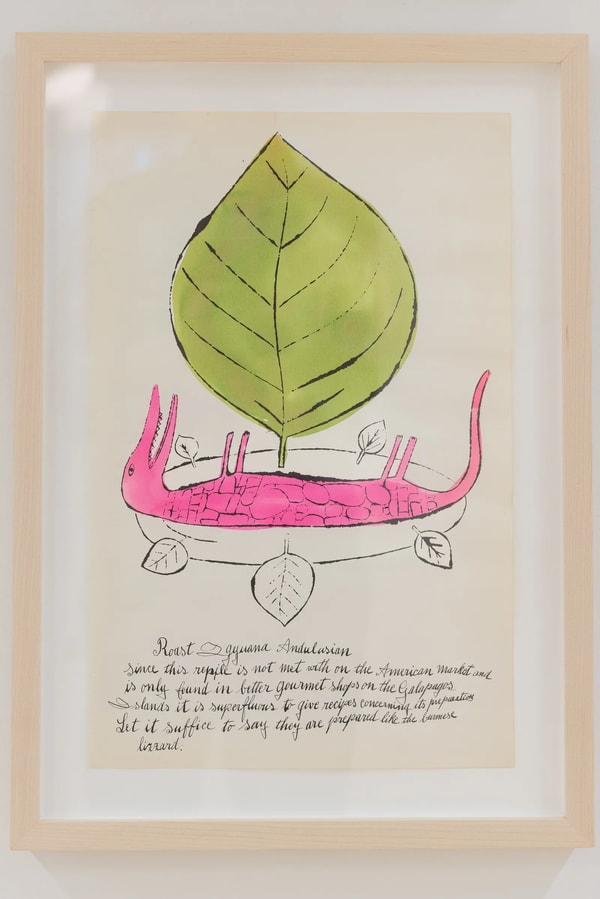 Roast Igyuana Andulusian
since this reptile is not met with on the American market and
is only found in better gourmet shops on the Galapagos
Islands it is superfluous to give recipes concerning its preparation
Let it suffice to say they are prepared like the burmese
lizzard.